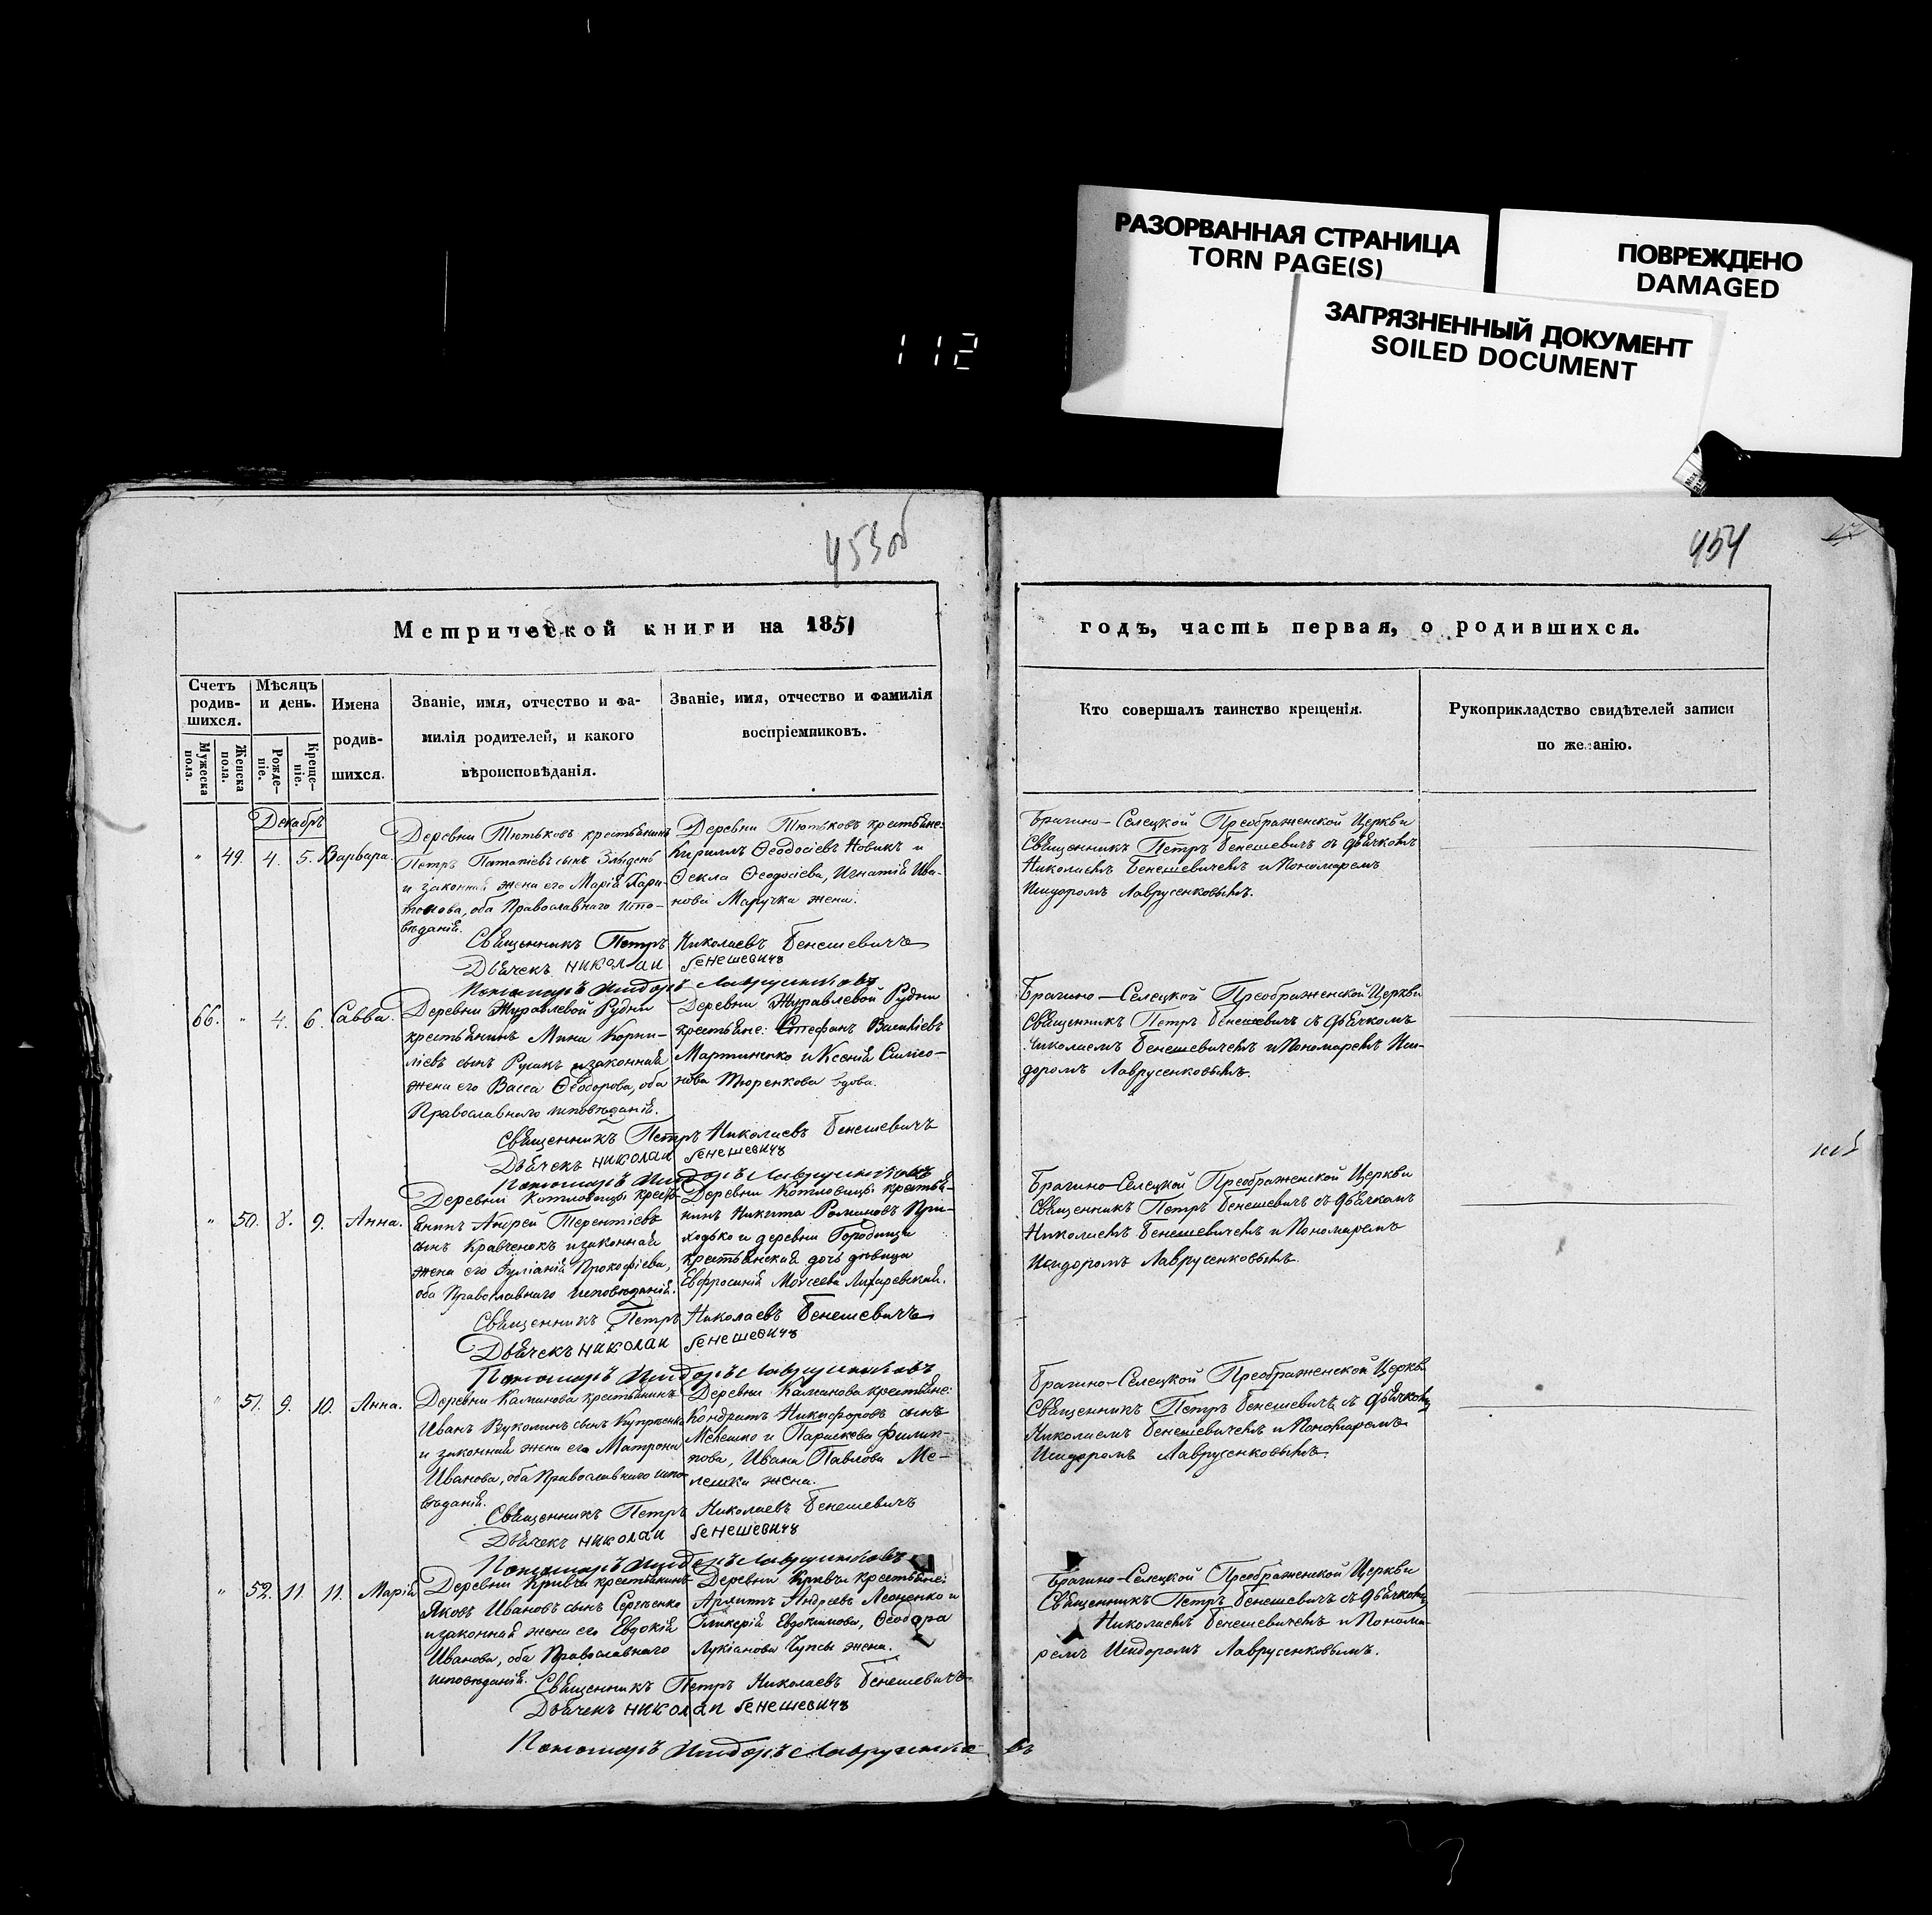 РАЗОРВАННАЯ СТРАНИЦА
TORN PAGE(S)
ПОВРЕЖДЕНО
DAMAGED
ЗАГРЯЗНЕННЫЙ ДОКУМЕНТ
SOILED DOCUMENT
112
453об
454
Метрической книги на 1851
годъ, часть первая, о родившихся.
Счетъ родив-шихся.
Мужеска пола.
Женска пола.
Мѣсяцъ и день.
Рожде-ніе.
Креще-ніе.
Имена
родив-
шихся.
Званіе, имя, отчество и фа-
милія родителей, и какого
вѣроисповѣданія.
Званіе, имя, отчество и фамилія
воспріемниковъ.
Кто совершалъ таинство крещенія.
Рукоприкладство свидѣтелей записи
по желанію.
Декабрь
" 49. 4. 5. Варвара.
Деревни Тютьковъ крестьянинъ
Петръ Потапіевъ сынъ
и законная жена его Марія Хари-
тонова, оба Православнаго испо-
вѣданія.
Деревни Тютьковъ крестьяне:
Кириллъ Ѳеодосіевъ Новикъ и
Ѳекла Ѳеодосіева, Игнатія Ива-
нова Маручка жена.
Священникъ Петръ Николаевъ Бенешевичъ
Дьячекъ Николай Бенешевичъ
Пономарь Исидоръ Лаврусенковъ
Брагино-Селецкой Преображенской Церкви
Священникъ Петръ Бенешевичъ съ дьячкомъ
Николаемъ Бенешевичемъ и Пономаремъ
Исидоромъ Лаврусенковымъ.
66. " 4. 6. Савва.
Деревни Журавлевой Рудни
крестьянинъ Мина Корни-
ліевъ сынъ Русакъ и законная
жена его Васса Ѳеодорова, оба
Православнаго исповѣданія.
Деревни Журавлевой Рудни
крестьяне: Стефанъ Василіевъ
Мартиненко и Ксенія Симео-
нова Тюренкова вдова.
Священникъ Петръ Николаевъ Бенешевичъ
Дьячекъ Николай Бенешевичъ
Пономарь Исидоръ Лаврусенковъ
Брагино-Селецкой Преображенской Церкви
Священникъ Петръ Бенешевичъ съ дьячкомъ
Николаемъ Бенешевичемъ и Пономаремъ Иси-
доромъ Лаврусенковымъ.
" 50. 8. 9. Анна.
Деревни Котловицы кресть-
янинъ Андрей Терентіевъ
сынъ Кравченокъ и законная
жена его Іуліанія Прокофіева,
оба Православнаго исповѣданія.
Деревни Котловицы крестья-
нинъ Никита Романовъ При-
ходько и деревни Городища
крестьянская дочь дѣвица
Евфросинія Моисеева
Священникъ Петръ Николаевъ Бенешевичъ
Дьячекъ Николай Бенешевичъ
Пономарь Исидоръ Лаврусенковъ
Брагино-Селецкой Преображенской Церкви
Священникъ Петръ Бенешевичъ съ дьячкомъ
Николаемъ Бенешевичемъ и Пономаремъ
Исидоромъ Лаврусенковымъ.
" 51. 9. 10. Анна.
Деревни Каманова крестьянинъ
Иванъ Вуколинъ сынъ Купрѣенко
и законная жена его Матрона
Иванова, оба Православнаго испо-
вѣданія.
Деревни Каманова крестьяне:
Кондратъ Никифоровъ сынъ
Мелешко и Параскева Филип-
пова, Ивана Павлова Ме-
лешки жена.
Священникъ Петръ Николаевъ Бенешевичъ
Дьячекъ Николай Бенешевичъ
Пономарь Исидоръ Лаврусенковъ
Брагино-Селецкой Преображенской Церкви
Священникъ Петръ Бенешевичъ съ дьячкомъ
Николаемъ Бенешевичемъ и Пономаремъ
Исидоромъ Лаврусенковымъ.
" 52. 11. 11. Марія
Деревни Кривчи крестьянинъ
Яковъ Ивановъ сынъ Сергѣенко
и законная жена его Евдокія
Иванова, оба Православнаго
исповѣданія.
Деревни Кривчи крестьяне:
Архипъ Андреевъ Леоненко и
Гликерія Евдокимова, Ѳеодора
Лукіанова Чупсы жена.
Священникъ Петръ Николаевъ Бенешевичъ
Дьячекъ Николай Бенешевичъ
Пономарь Исидоръ Лаврусенковъ
Брагино-Селецкой Преображенской Церкви
Священникъ Петръ Бенешевичъ съ дьячкомъ
Николаемъ Бенешевичемъ и Понома-
ремъ Исидоромъ Лаврусенковымъ.